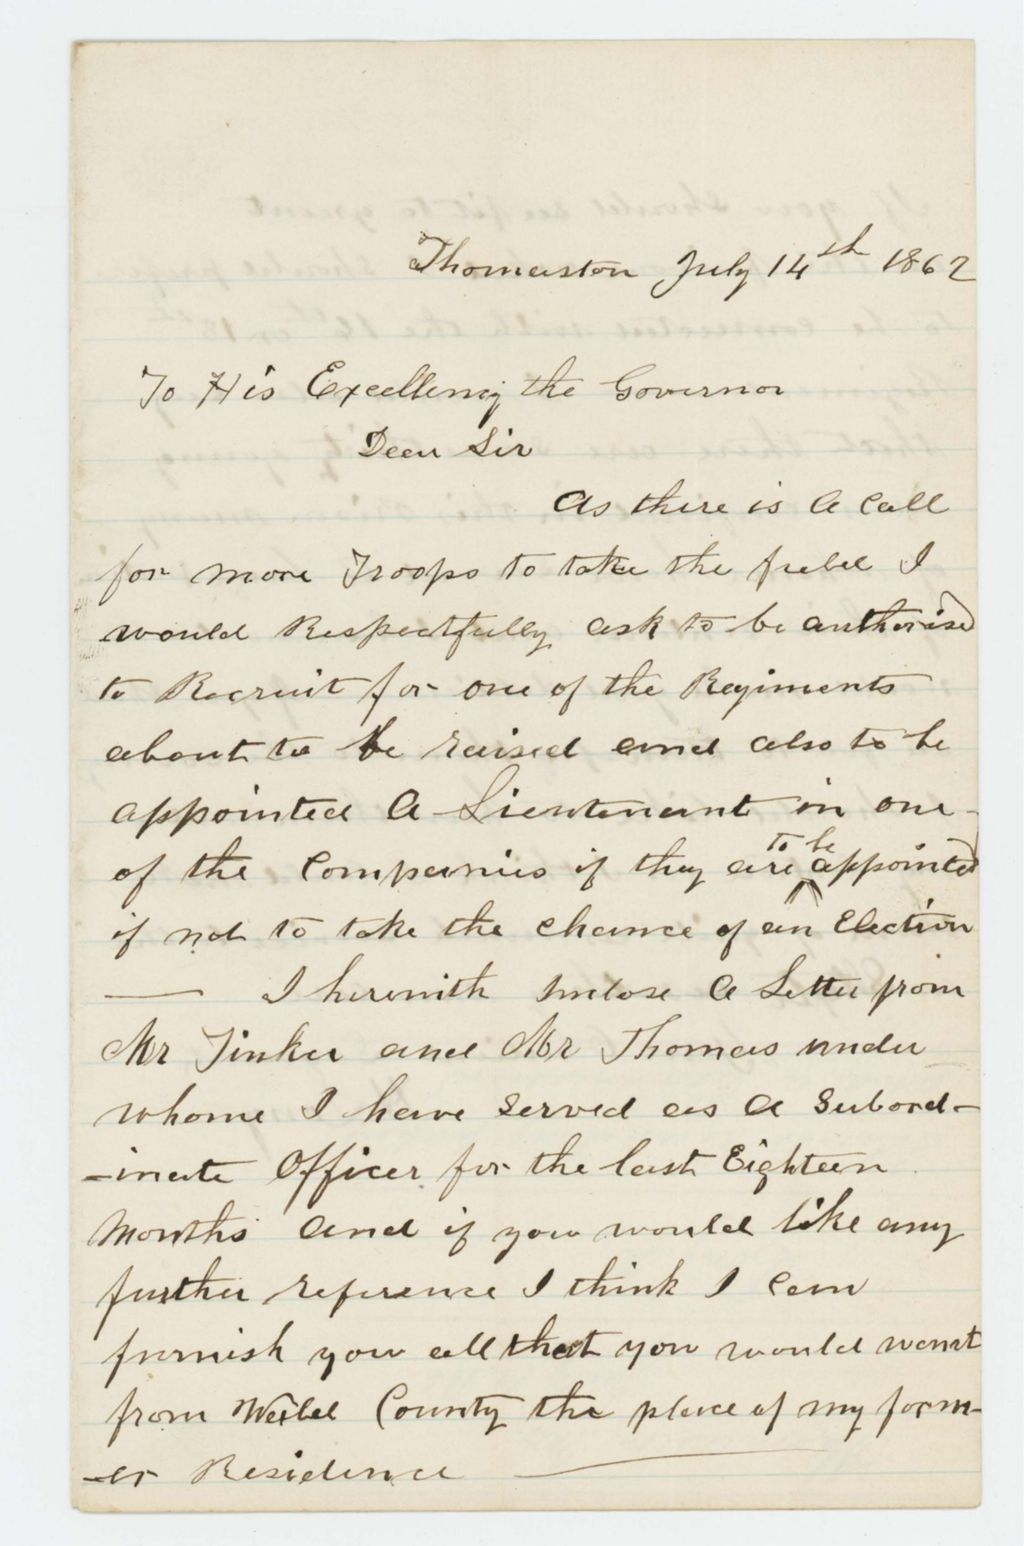 Thomaston July 14th 1862
To His Excellency the Governor
Dear Sir
As there is a Call
for more Troops to take the field I
would Respectfully ask to be authorised
to Recruit for one of the Regiments
about to be raised and also to be
appointed a Lieutenant in one
of the Companies if they are to be appointed
if not to take the chance of an Election
— I herewith inclose a Letter from
Mr Tinker and Mr Thomas under
whome I have served as a Subord-
-inate Officer for the last Eighteen
Months and if you would like any
further reference I think I can
furnish you all that you would want
from County the place of my form-
-er Residence —